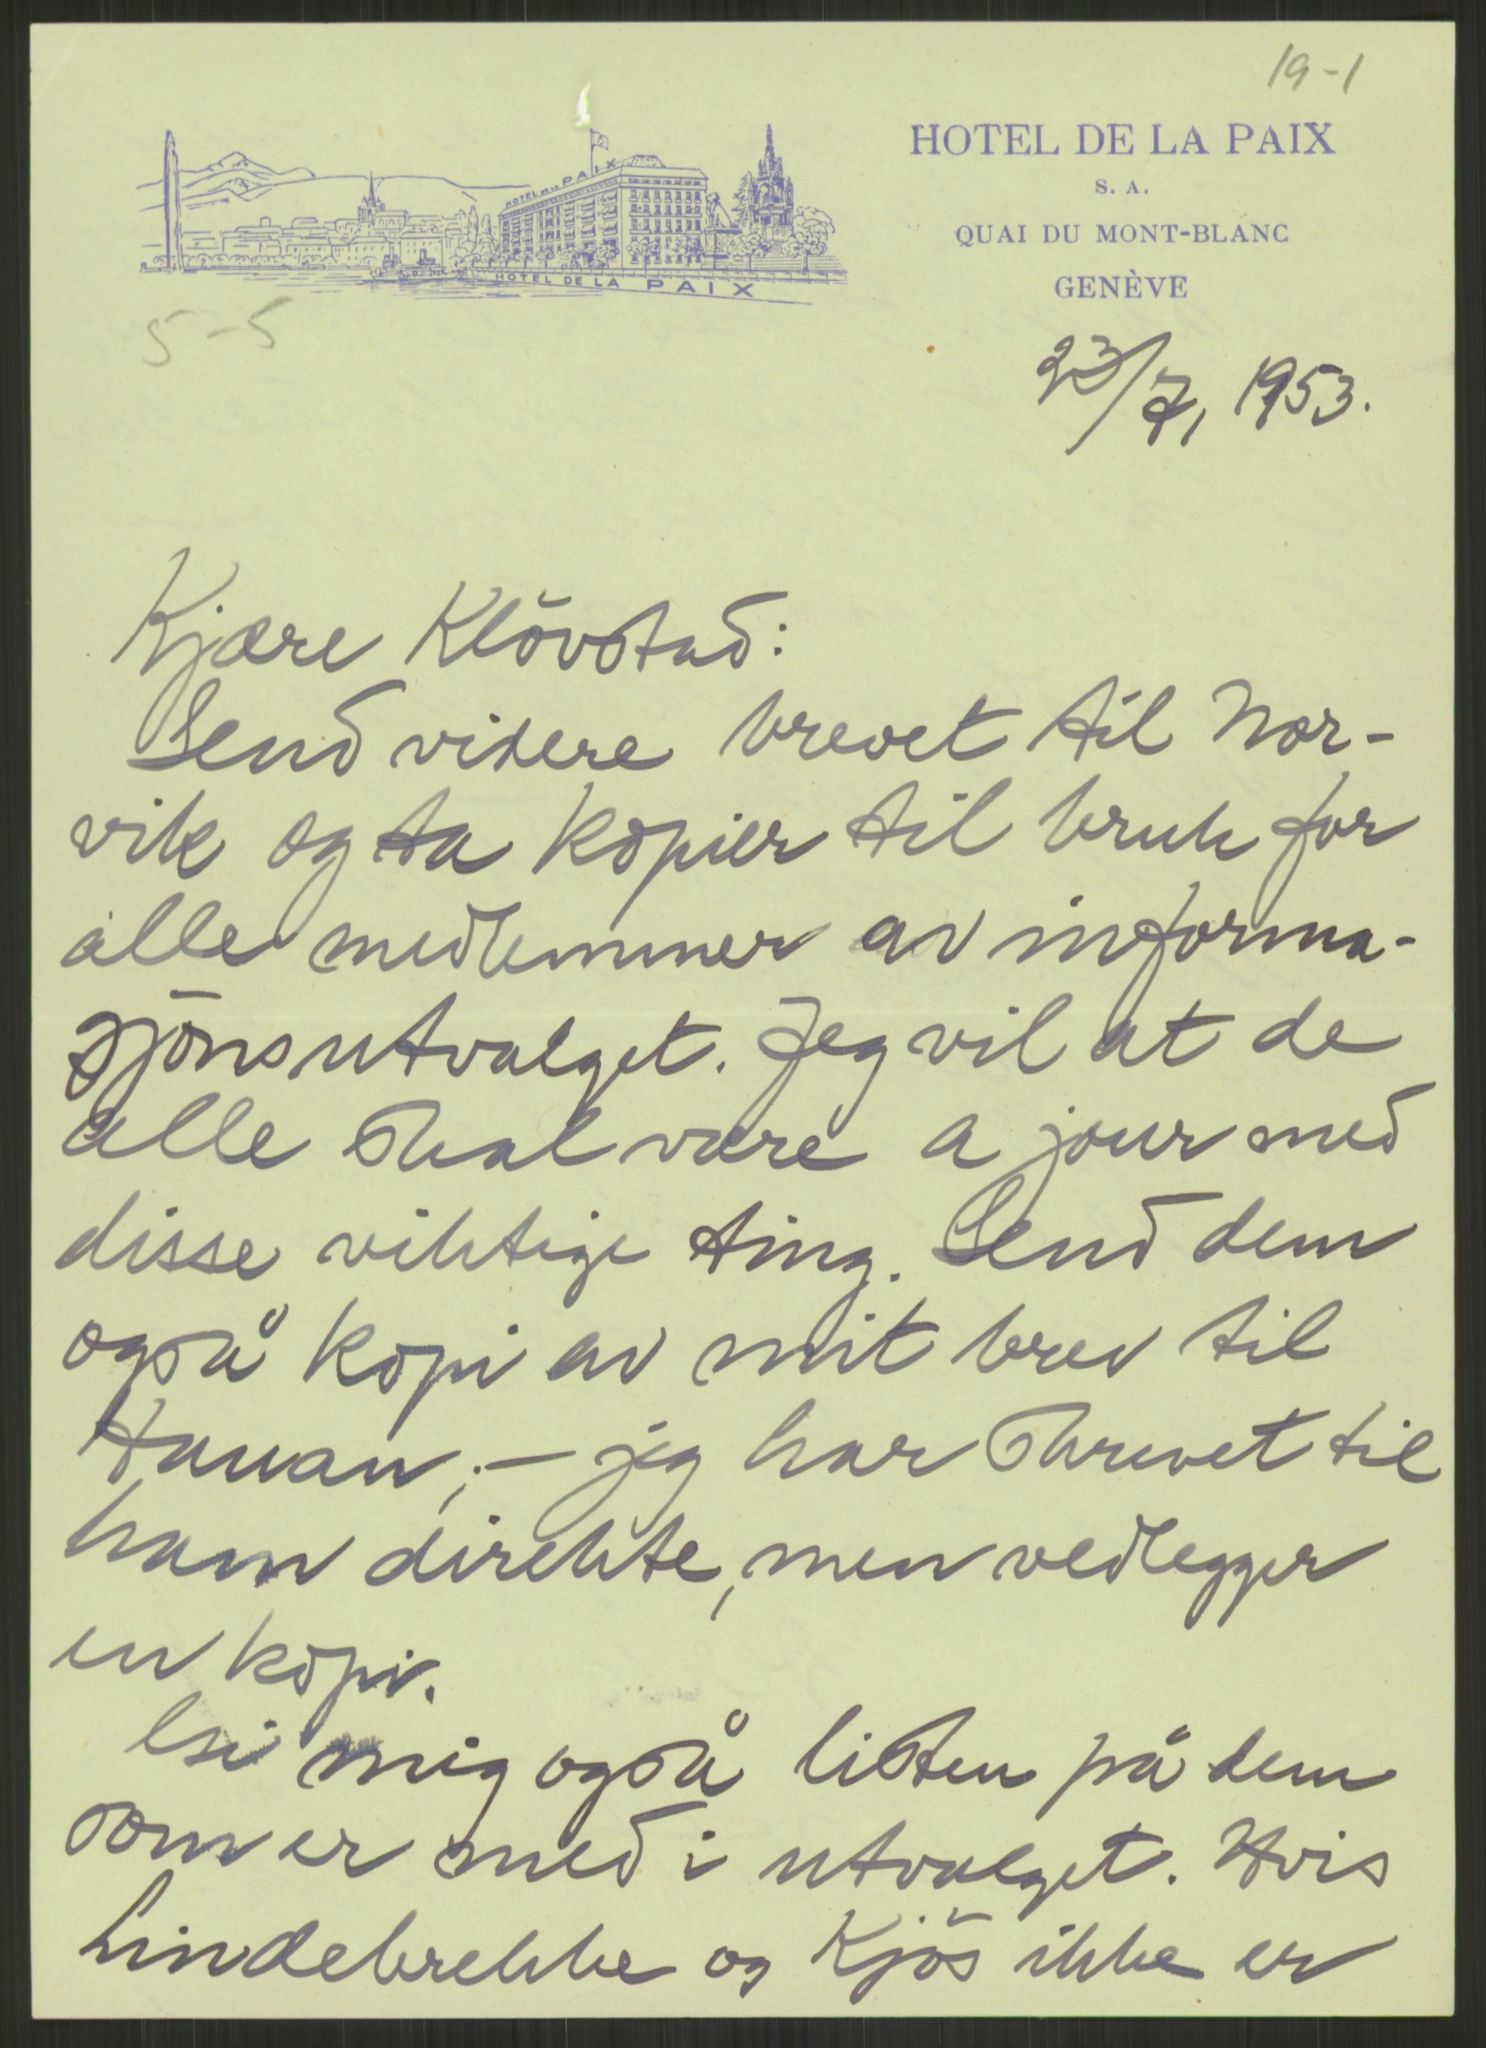 19-1
HOTEL DE LA PAIX
S. A.
QUAI DU MONT-BLANC
GENÈVE
HOTEL DE LA PAIX
5-5
23/7, 1953.
Kjære Klövstad:
Send videre brevet til Nor-
vik og ta kopier til bruk for
alle medlemmer av informa-
sjönsutvalget. Jeg vil at de
alle skal være a jour med
disse viktige ting. Send dem
også kopi av mit brev til
Hauan; – jeg har skrevet til
ham direkte, men vedlegger
en kopi.
mig også listen på dem
som er med i utvalget. Hvis
Lindebrekke og Kjös ikke er